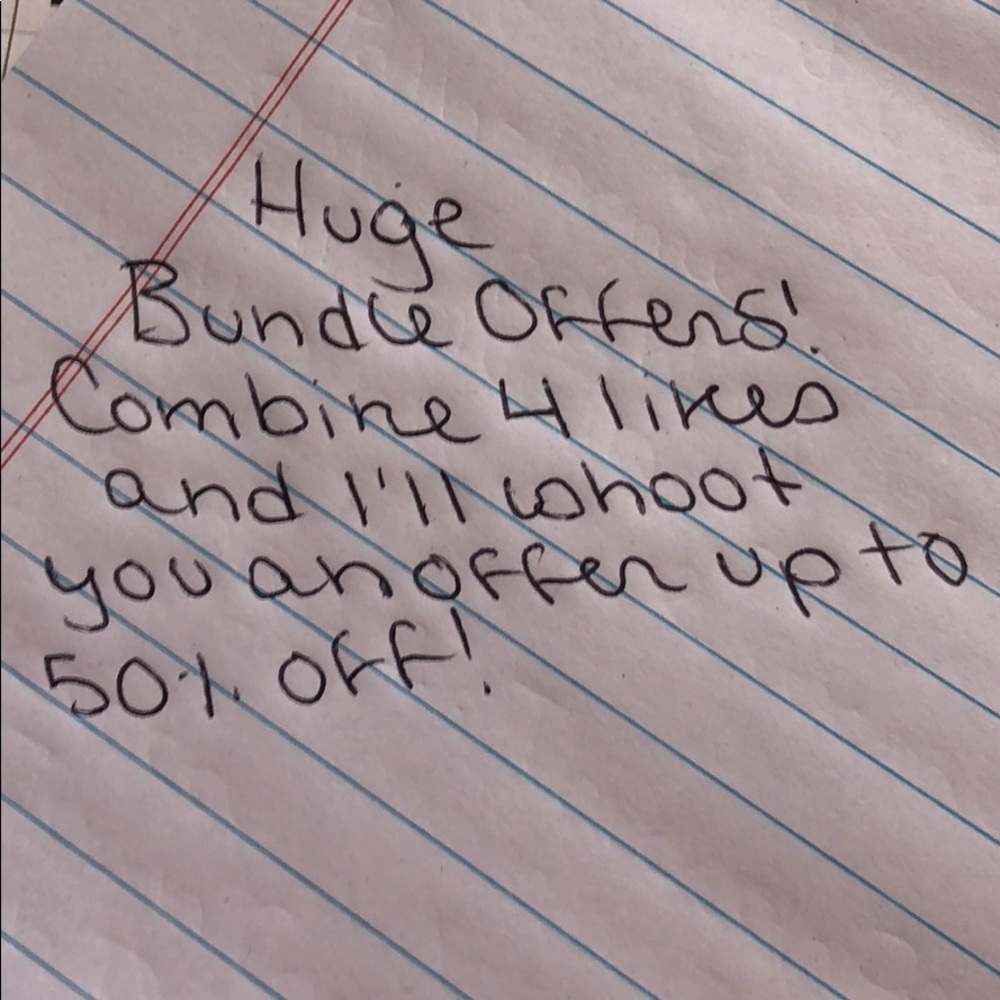 Huge
Bundle Offers!
Combine 4 likes
and I'll whoot
you an offer up to
50% off!